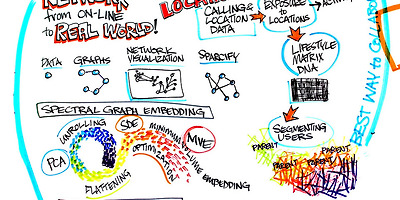 NETWORK
from ON-LINE
to REAL WORLD!
DATA
GRAPHS
NETWORK
VISUALIZATION
SPARCIFY
SPECTRAL GRAPH EMBEDDING
UNROLLING
PCA
FLATTENING
SDE
MINIMUM VOLUME EMBEDDING
OPTIMIZATION
MVE
CALLING &
LOCATION
DATA
EXPOSURE to
LOCATIONS
LIFESTYLE
MATRIX
DNA
SEGMENTING
USERS
PARENT
PARENT
PARENT
PARENT
BEST WAY to COLLABO